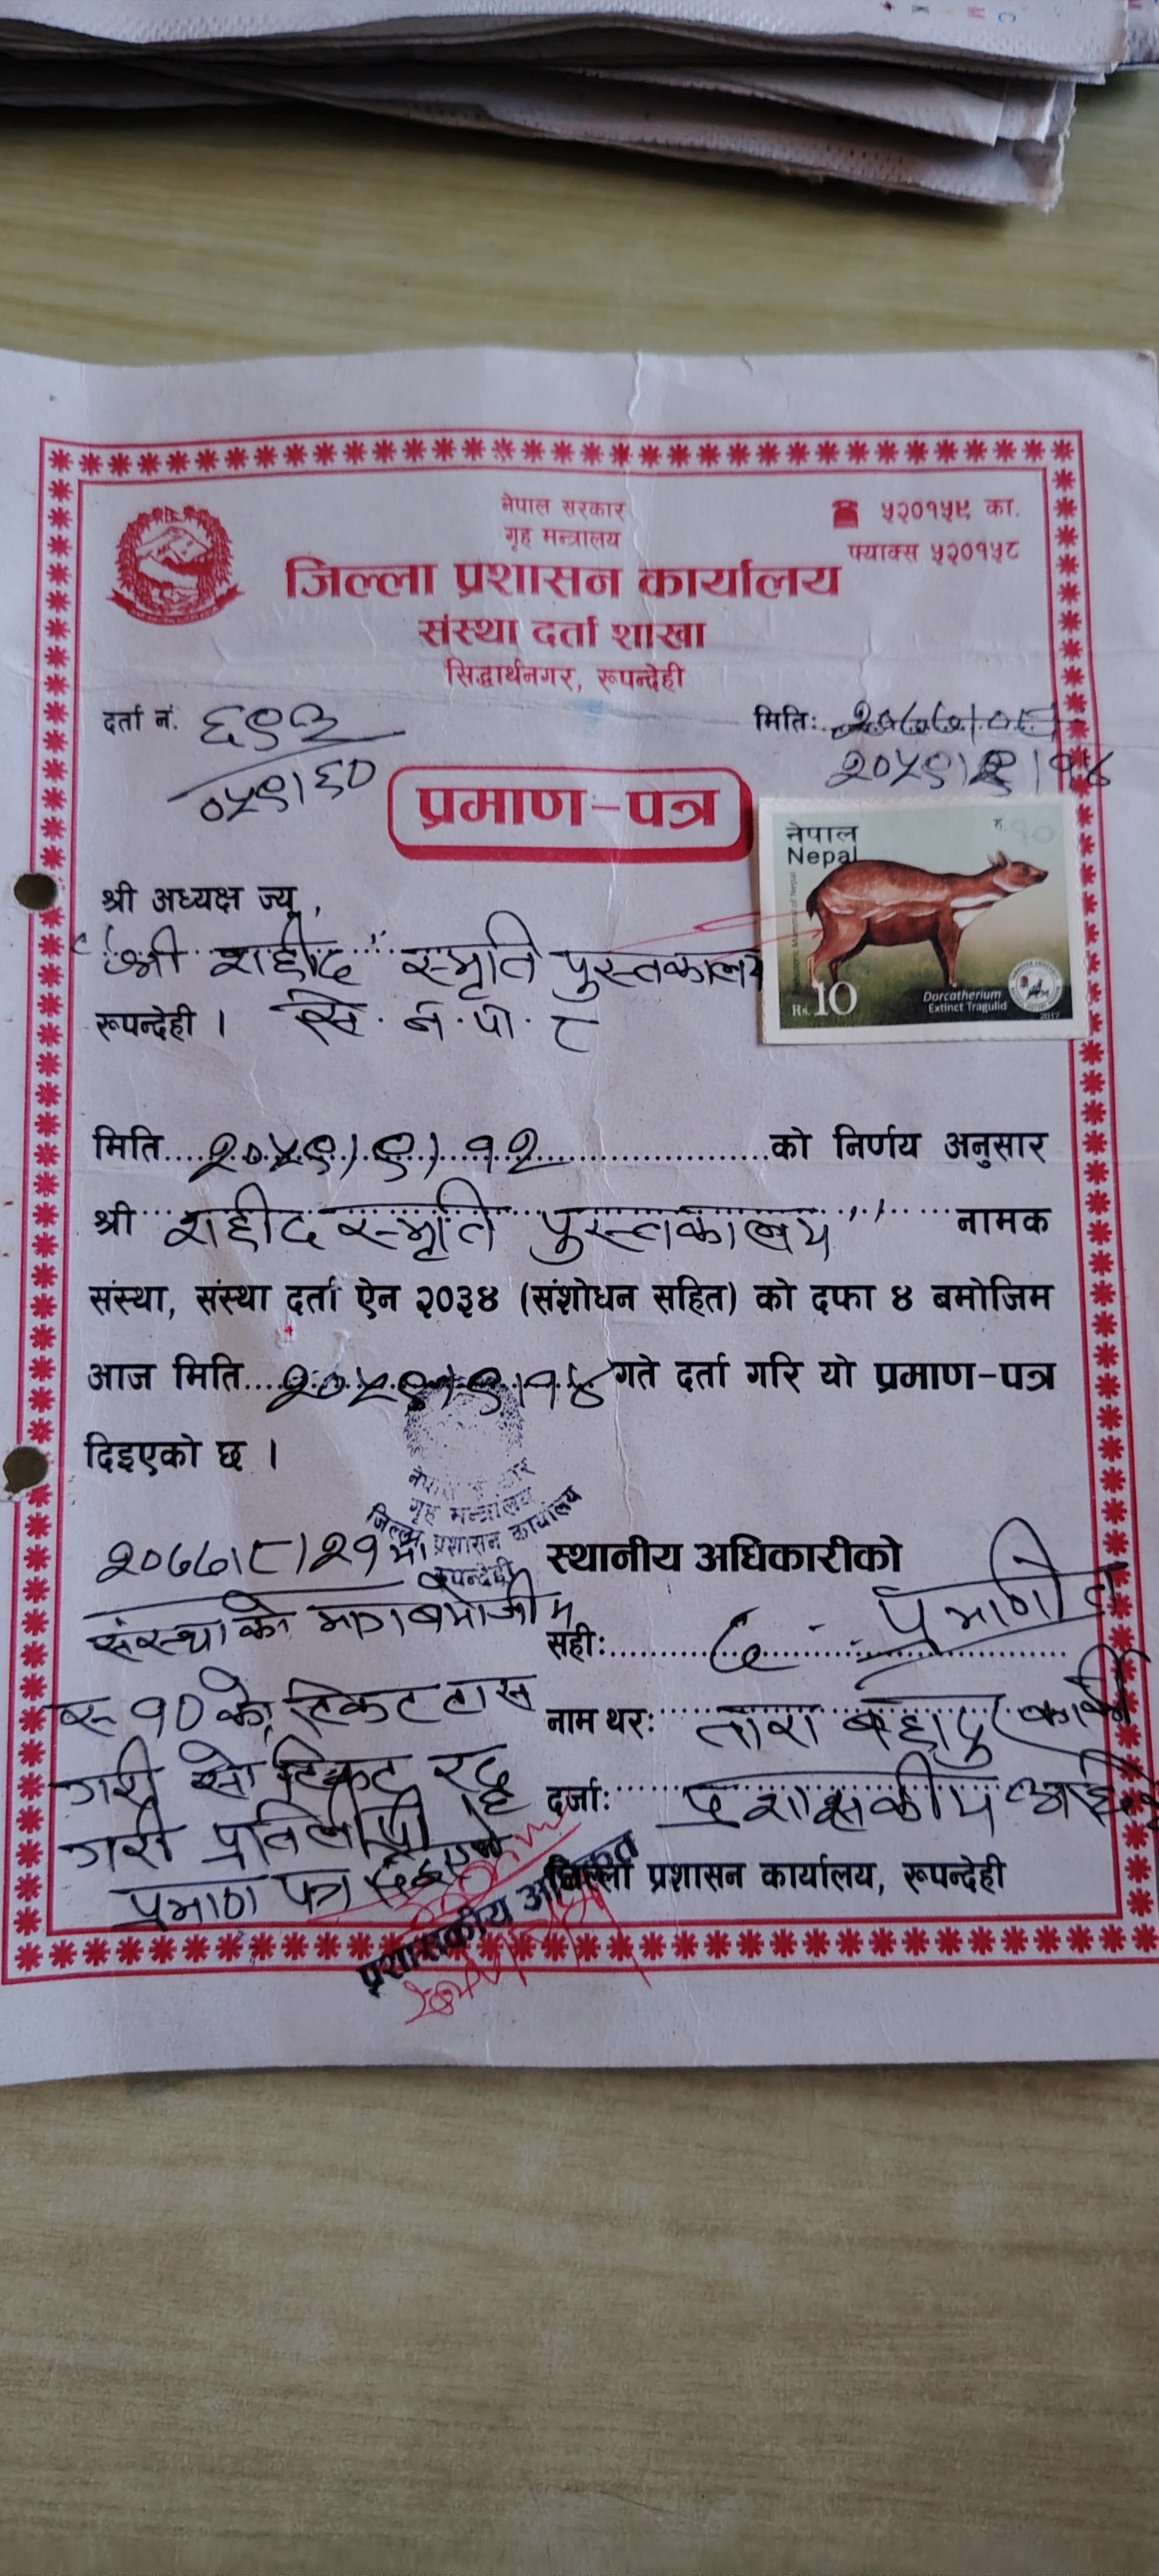 नेपाल सरकार
गृह मन्त्रालय
जिल्ला प्रशासन कार्यालय
संस्था दर्ता शाखा
सिद्धार्थनगर, रूपन्देही
५२०१५९ का.
फ्याक्स ५२०१५८
दर्ता नं. ६९३
०५९।६०
मिति:
२०५९।९।१४
प्रमाण-पत्र
नेपाल
Nepal
रु.१०
Rs. 10
Dorcatherium
Extinct Tragulid
2017
श्री अध्यक्ष ज्यू,
श्री शहीद स्मृति पुस्तकालय
रूपन्देही । सि.न.पा. ८
मिति २०५९।९।१२ को निर्णय अनुसार
श्री शहीद स्मृति पुस्तकालय" नामक
संस्था, संस्था दर्ता ऐन २०३४ (संशोधन सहित) को दफा ४ बमोजिम
आज मिति २०५९।९।१४ गते दर्ता गरि यो प्रमाण-पत्र
दिइएको छ ।
नेपाल सरकार
गृह मन्त्रालय
जिल्ला प्रशासन कार्यालय
रुपन्देही
२०७७।८।२१ मा
संस्थाको माग बमोजीम
रु १० को टिकट टास
गरी सो टिकट रद्द
गरी प्रतिलिपी
प्रमाण पत्र दिइएको
स्थानीय अधिकारीको
सही:
नाम थर: तारा बहादुर कार्की
दर्जा: प्रशासकीय
जिल्ला प्रशासन कार्यालय, रूपन्देही
प्रशासकीय अधिकृत